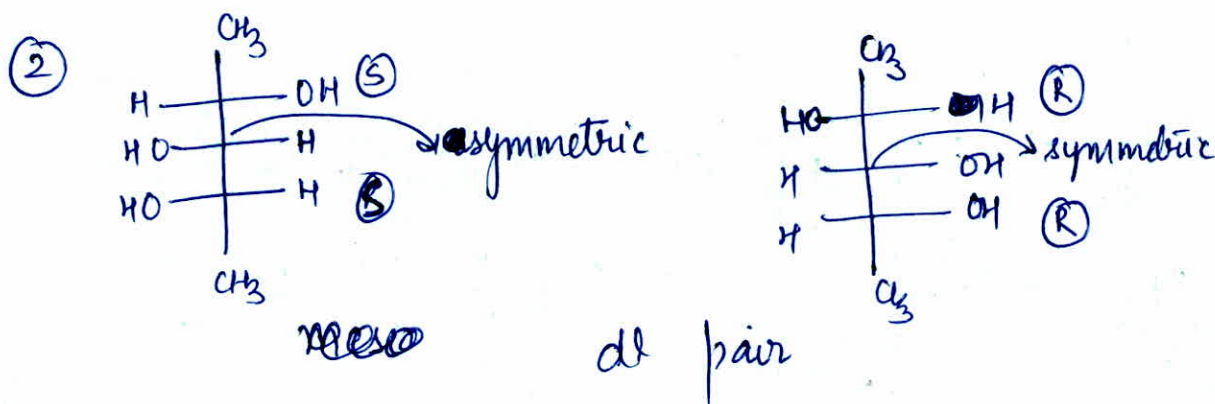 ②
CH3
H OH Ⓢ
HO H symmetric
HO H Ⓢ
CH3
CH3
HO H Ⓡ
H OH symmetric
H OH Ⓡ
CH3
dl pair